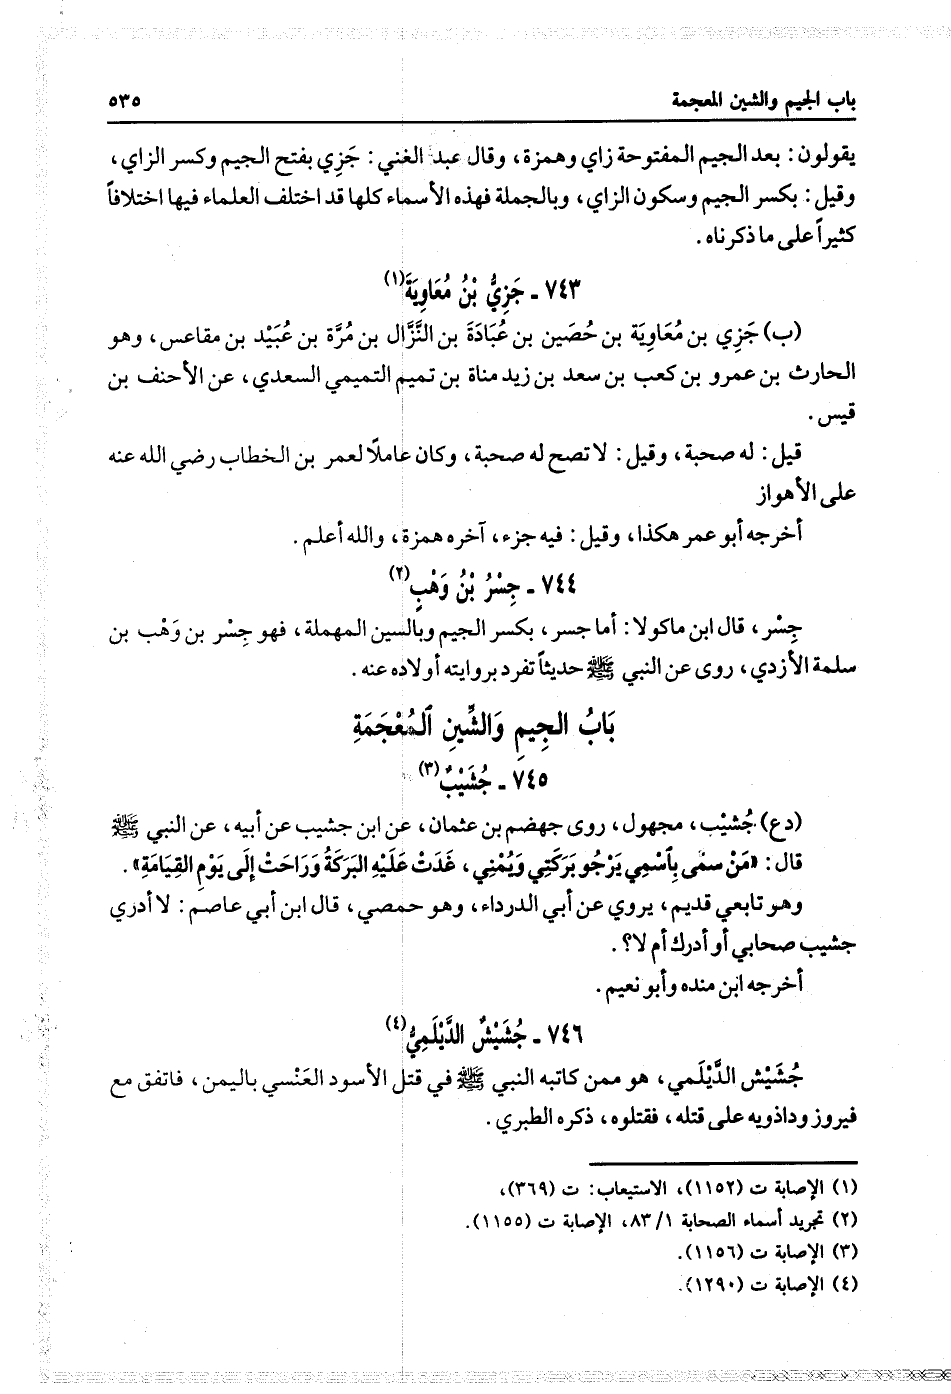 باب الجيم والشين المعجمة ٥٣٥
يقولون: بعد الجيم المفتوحة زاي وهمزة، وقال عبد الغني: جَزِي بفتح الجيم وكسر الزاي،
وقيل: بكسر الجيم وسكون الزاي، وبالجملة فهذه الأسماء كلها قد اختلف العلماء فيها اختلافاً
كثيراً على ما ذكرناه.
٧٤٣ ـ جَزِيُّ بْنُ مُعَاوِيَةَ(١)
(ب) جَزِي بن مُعَاوِيَة بن حُصَين بن عُبَادَةَ بن النَّزَّال بن مُرَّة بن عُبَيْد بن مقاعس، وهو
الحارث بن عمرو بن كعب بن سعد بن زيد مناة بن تميم التميمي السعدي، عن الأحنف بن
قيس.
قيل: له صحبة، وقيل: لا تصح له صحبة، وكان عاملًا لعمر بن الخطاب رضي الله عنه
على الأهواز
أخرجه أبو عمر هكذا، وقيل: فيه جزء، آخره همزة، والله أعلم.
٧٤٤ ـ جِسْرُ بْنُ وَهْبٍ(٢)
جِسْر، قال ابن ماكولا: أما جسر، بكسر الجيم وبالسين المهملة، فهو جِسْر بن وَهْب بن
سلمة الأزدي، روى عن النبي ﷺ حديثاً تفرد بروايته أولاده عنه.
بَابُ الجِيمِ وَالشِّينِ ٱلمُعْجَمَةِ
٧٤٥ ـ جُشَيْبٌ(٣)
(دع) جُشَيْب، مجهول، روى جهضم بن عثمان، عن ابن جشيب عن أبيه، عن النبي ﷺ
قال: «مَنْ سمَّى بِٱسْمِي يَرْجُو بَرَكَتِي وَيُمْنِي، غَدَتْ عَلَيْهِ البَرَكَةُ وَرَاحَتْ إِلَى يَوْمِ القِيَامَةِ».
وهو تابعي قديم، يروي عن أبي الدرداء، وهو حمصي، قال ابن أبي عاصم: لا أدري
جشيب صحابي أو أدرك أم لا؟.
أخرجه ابن منده وأبو نعيم.
٧٤٦ ـ جُشَيْشٌ الدَّيْلَمِيُّ(٤)
جُشَيْش الدَّيْلَمي، هو ممن كاتبه النبي ﷺ في قتل الأسود العَنْسي باليمن، فاتفق مع
فيروز وداذويه على قتله، فقتلوه، ذكره الطبري.
(١) الإصابة ت (١١٥٢)، الاستيعاب: ت (٣٦٩)،
(٢) تجريد أسماء الصحابة ١/ ٨٣، الإصابة ت (١١٥٥).
(٣) الإصابة ت (١١٥٦).
(٤) الإصابة ت (١٢٩٠).